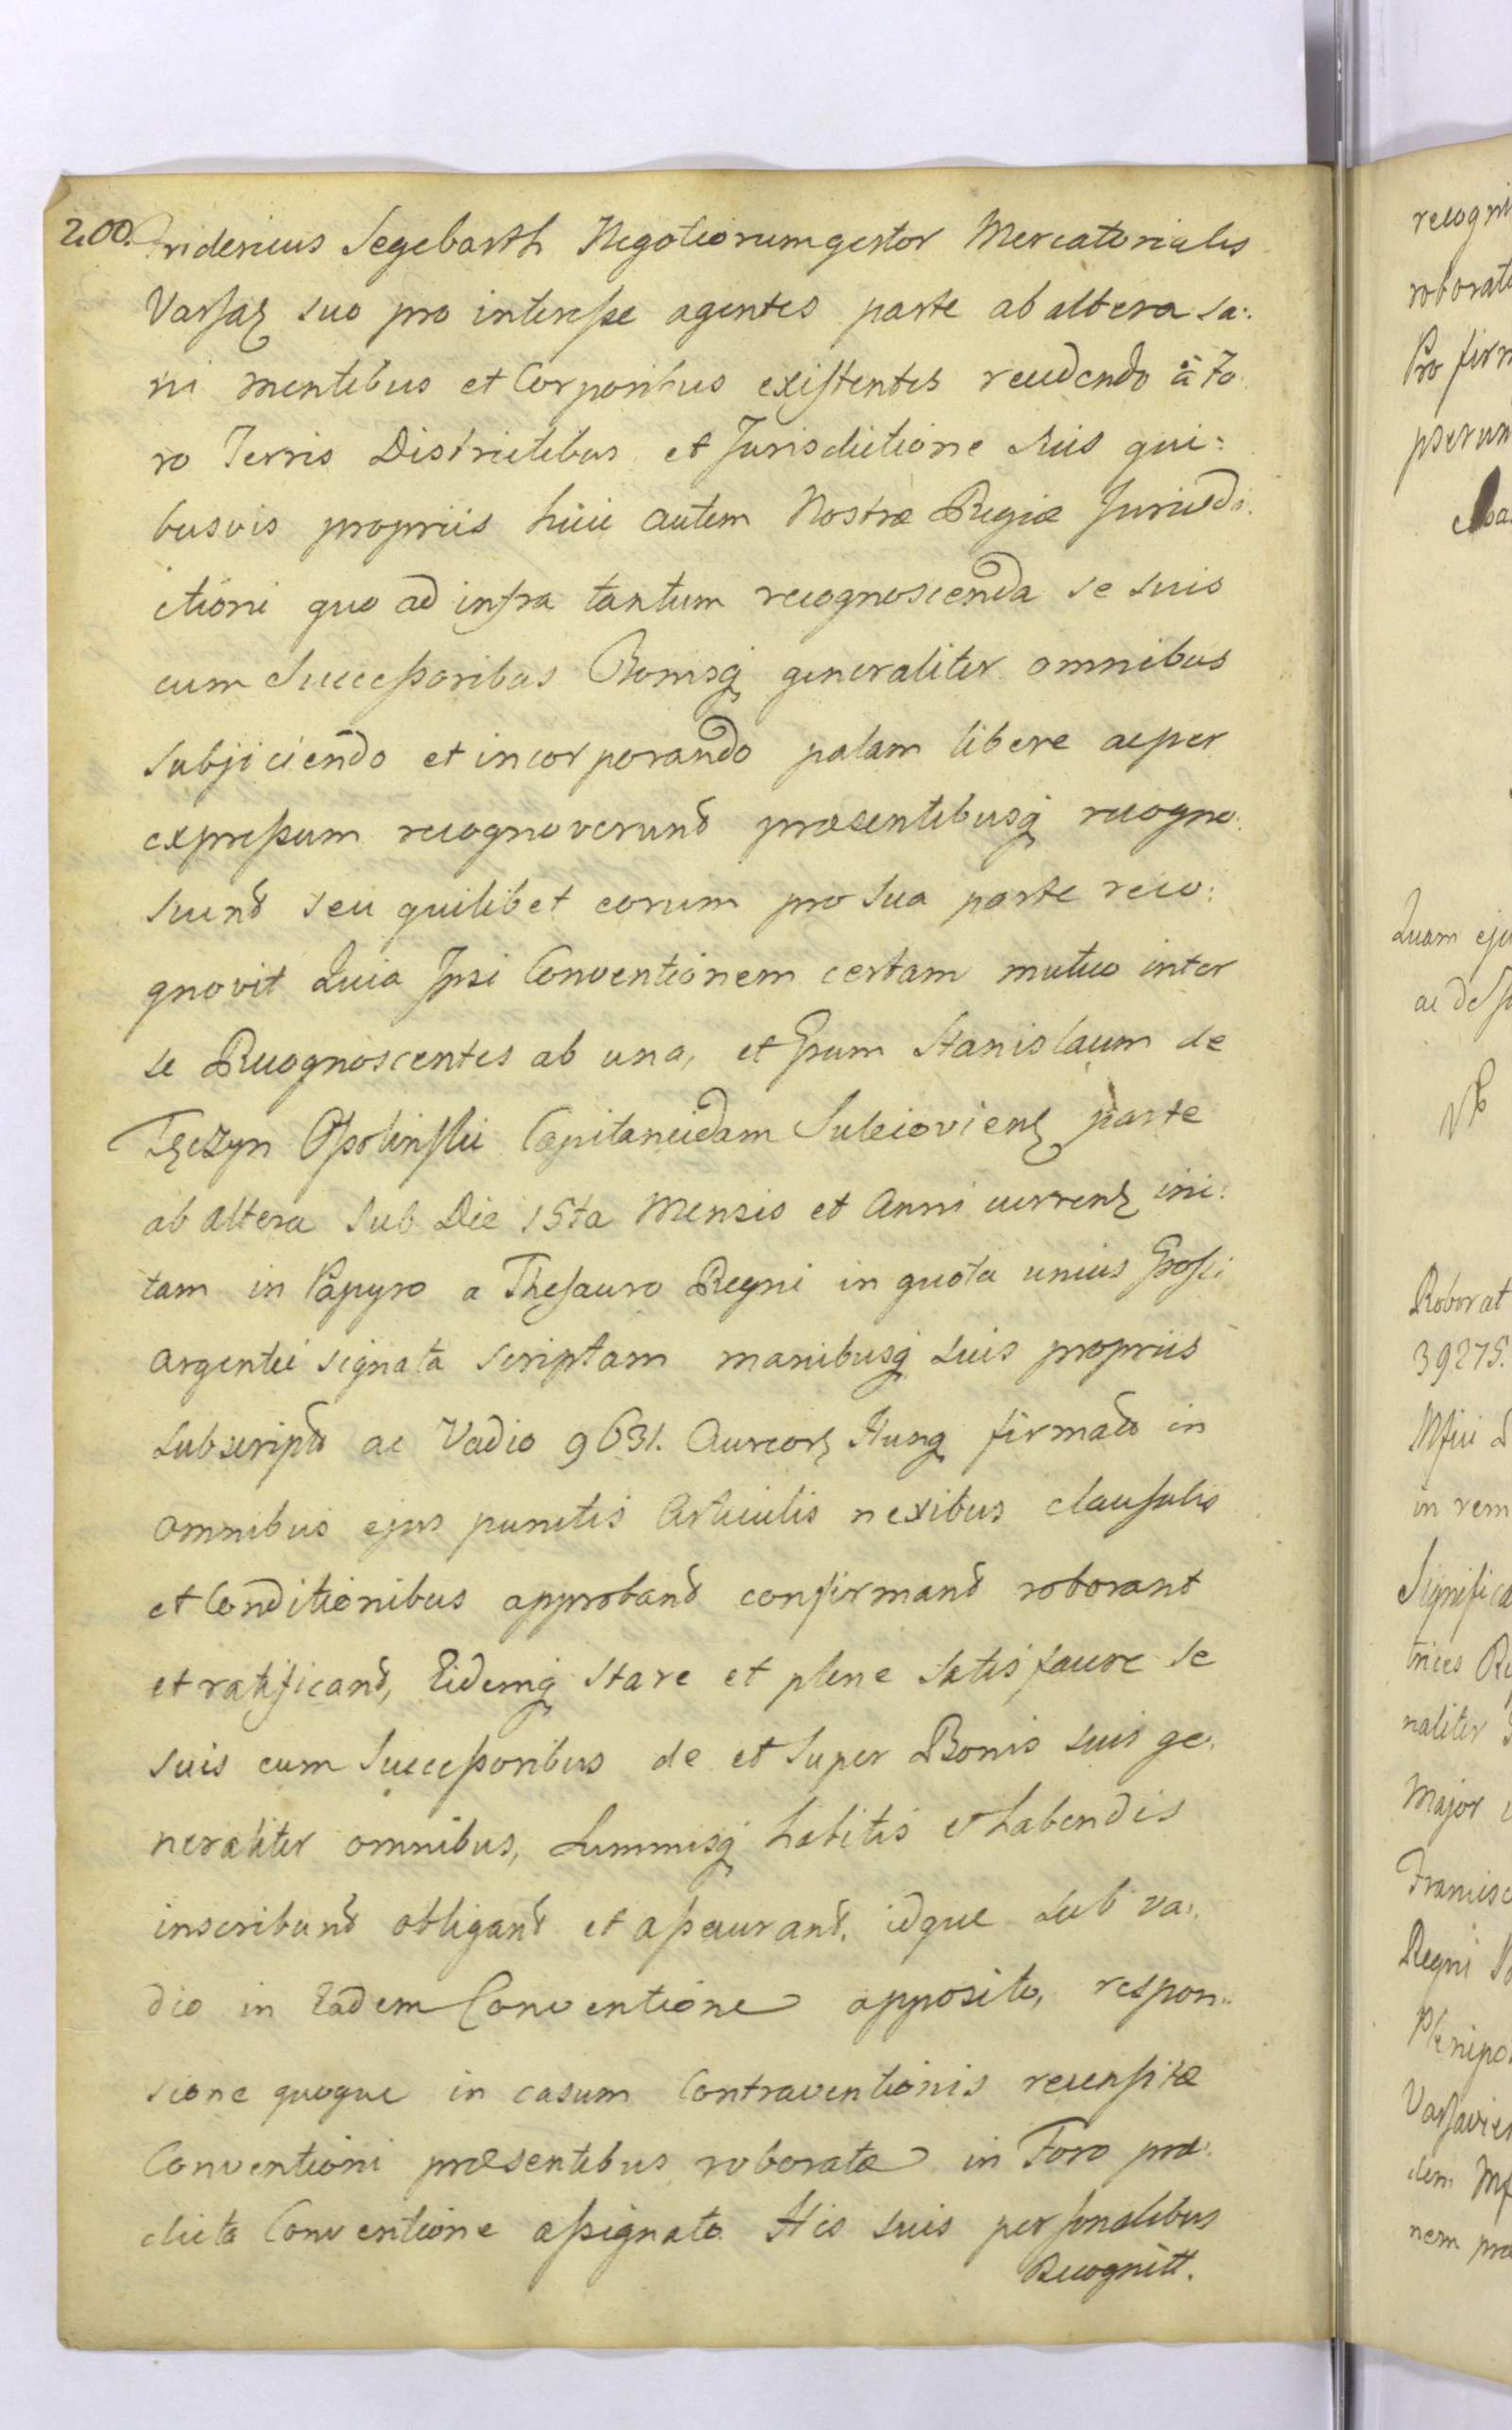 200. Fridericus Segebarth Negotiorumgestor Mercatorialis
Varsaʒ suo pro interesse agentes parte ab altera sa:
ni mentibus et Corporibus existentes recedendo à Fo
ro Terris Districtibus et Jurisdictione suis qui:
busvis propriis huic autem Nostræ Regiæ Jurisdi:
ctioni quo ad infra tantum recognoscenda se suis
cum Successoribus Bonisq generaliter omnibus
subjiciendo et incorporando palam libere ac per
expressum recognoverunt præsentibusq recogno:
scunt seu quilibet eorum pro sua parte reco:
gnovit Quia Ipsi Conventionem certam mutuo inter
se Recognoscentes ab una, et Gsum Stanislaum de
Tęczyn Ossolinski Capitaneidam Sulejovienʒ parte
ab altera sub Die 15ta Mensis et Anni currenʒ ini:
tam in Papyro a Thesauro Regni in quota unius Grossi
argentei signata scriptam manibusq suis propriis
subscriptã ac Vadio 9631. Aureorʒ Hung firmatã in
omnibus ejus punctis Articulis nexibus clausulis
et Conditionibus approbant confirmant roborant
et ratificant, Eidemq stare et plene satisfacere se
suis cum Successoribus de et super Bonis suis ge:
neraliter omnibus, summisq habitis et habendis
inscribunt obligant et assecurant. idque sub va:
dio in Eadem Conventione apposito, respon:
sione quoque in casum Contraventionis recensitæ
Conventioni præsentibus roboratæ in Foro præ:
dicta Conventione assignato His suis personalibus
Recognitt.
recogni
roborat
Pro firm
pserun
Quam eju
Roborat
39275.
in rem
Significa
trices Re
naliter
Major
Francisc
Regni
Plenipo
Varsavien
dem
nem præ